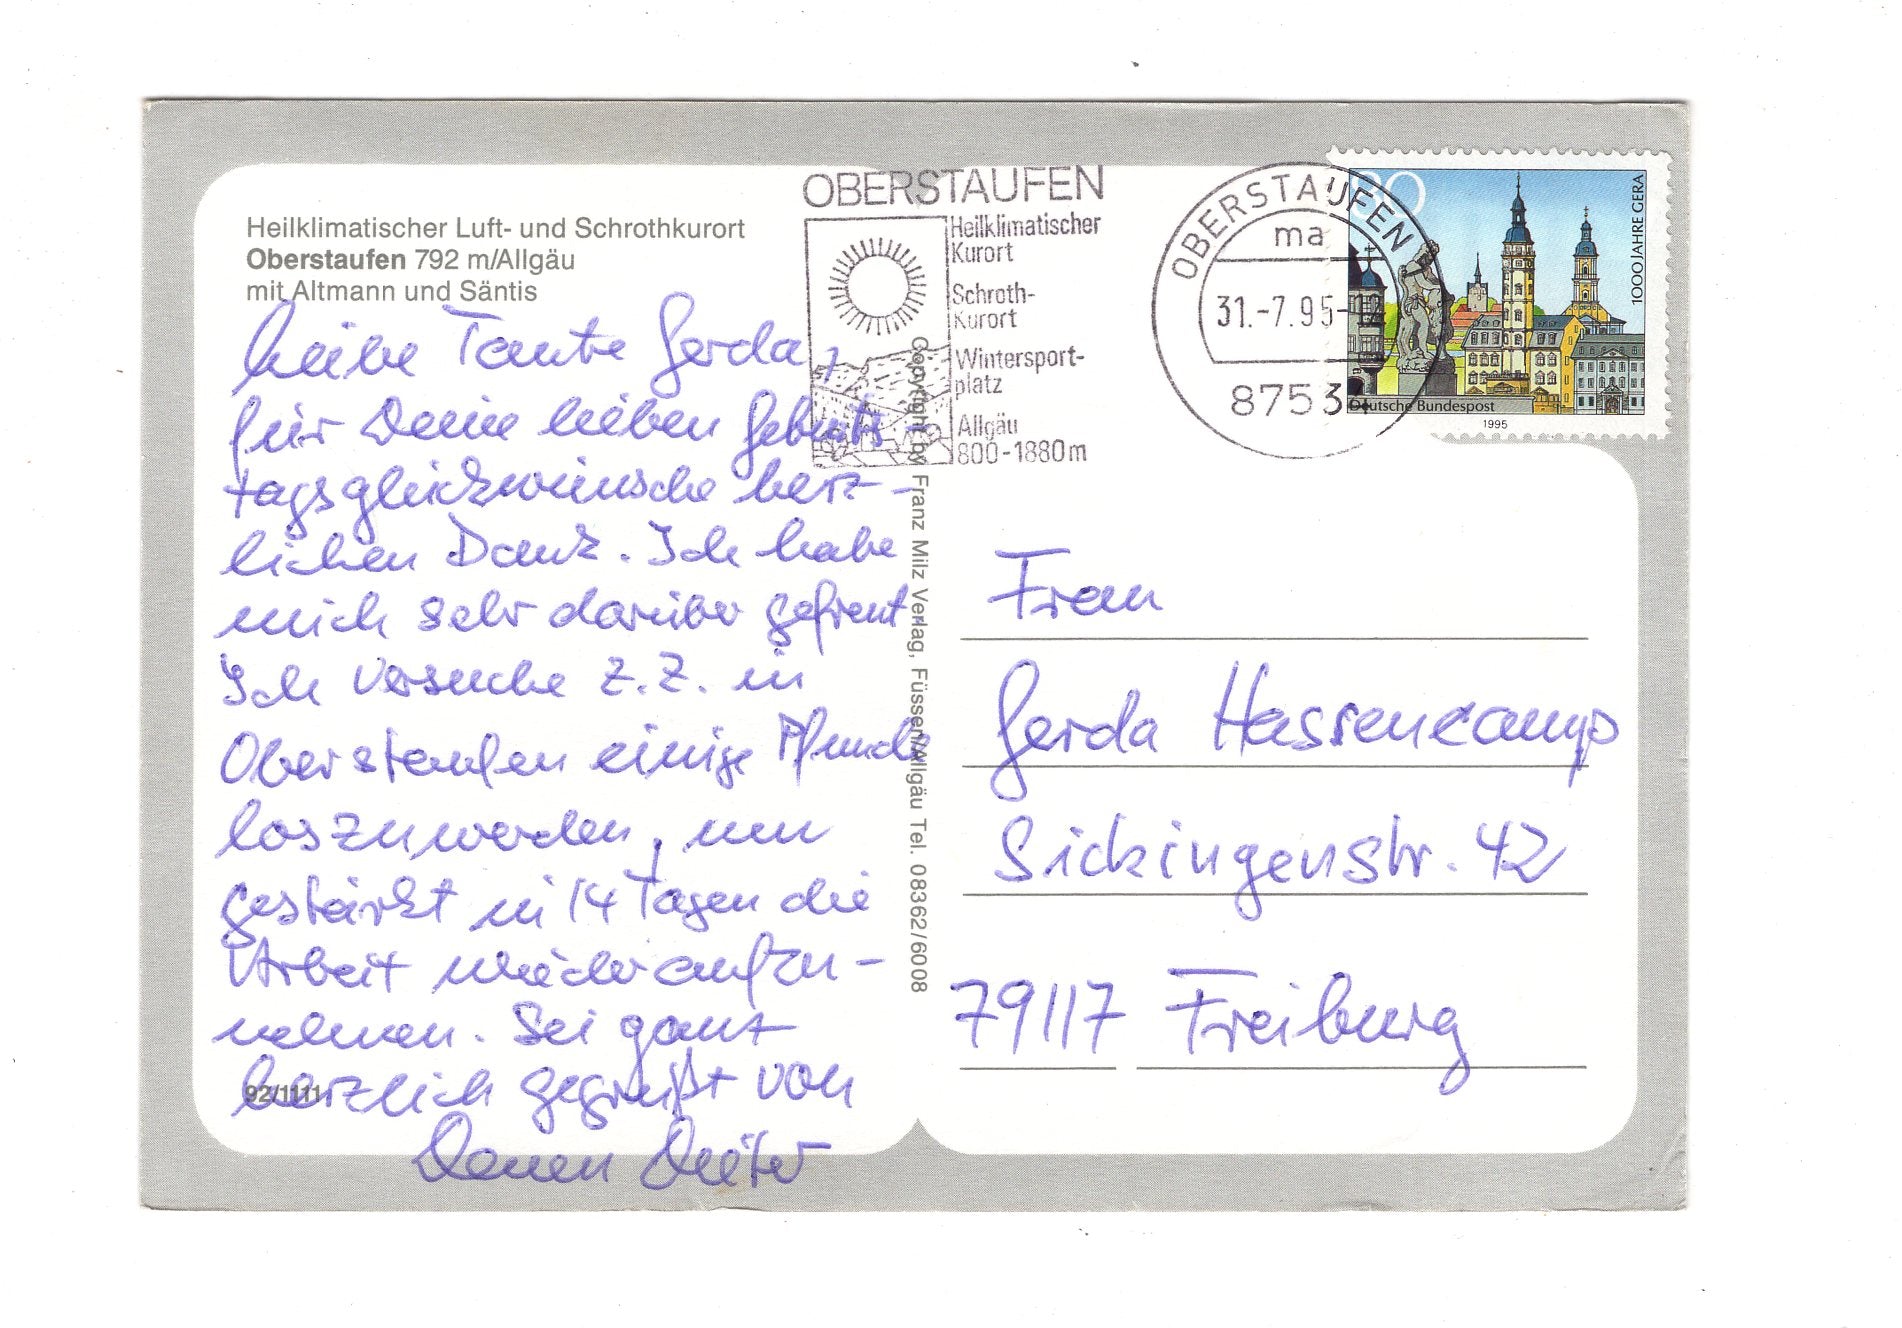 Heilklimatischer Luft- und Schrothkurort
Oberstaufen 792 m/Allgäu
mit Altmann und Säntis
Liebe Tante Gerda,
für Deine lieben Geburts
tagsglückwünsche herz-
lichen Dank. Ich habe
mich sehr darüber gefreut
Ich versuche z.Z. in
Oberstaufen einige Pfunde
loszuwerden, um
gestärkt in 14 Tagen die
Arbeit wieder aufzu-
nehmen. Sei ganz
herzlich gegrüßt von
Deinem Dieter
92/1111
Copyright by Franz Milz Verlag, Füssen/Allgäu Tel. 08362/6008
OBERSTAUFEN
Heilklimatischer
Kurort
Schroth-
Kurort
Wintersport-
platz
Allgäu
800-1880m
OBERSTAUFEN
ma
31.-7.95-
87534
80
1000 JAHRE GERA
Deutsche Bundespost
1995
Frau
Gerda Hassencamp
Sickingenstr. 42
79117 Freiburg